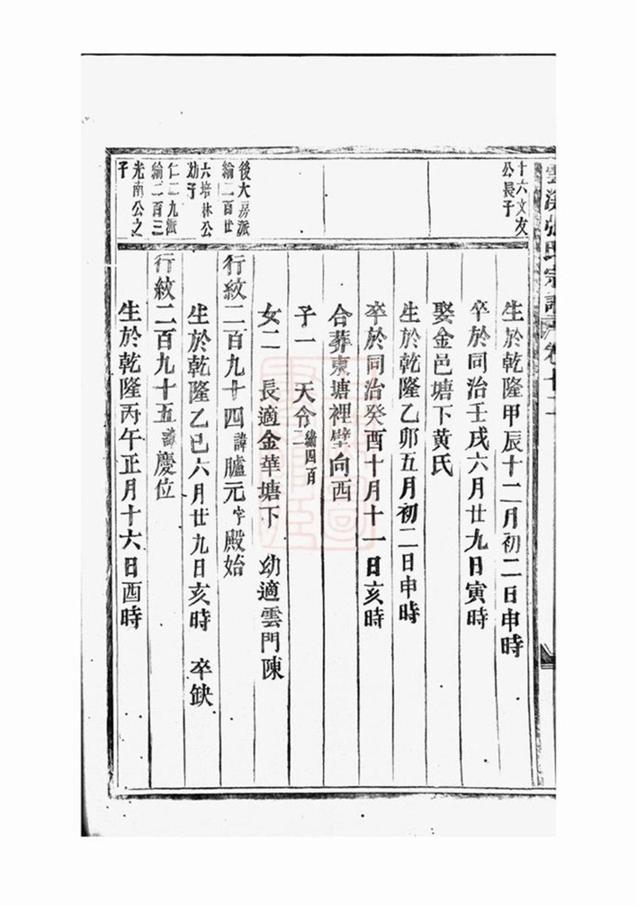 雲溪張氏宗譜 卷十二
十六文友
公長子
生於乾隆甲辰十二月初二日申時
卒於同治壬戌六月廿九日寅時
娶金邑塘下黃氏
生於乾隆乙卯五月初二日申時
卒於同治癸酉十月十一日亥時
合葬東塘裡壁向西
子一 天令 綸四百二
女二 長適金華塘下 幼適雲門陳
後大房派
綸二百廿
六培林公
幼子
行紋二百九十四諱臚元字殿始
生於乾隆乙巳六月廿九日亥時 卒缺
仁二九派
綸二百三
光南公之
子
行紋二百九十五諱慶位
生於乾隆丙午正月十六日酉時